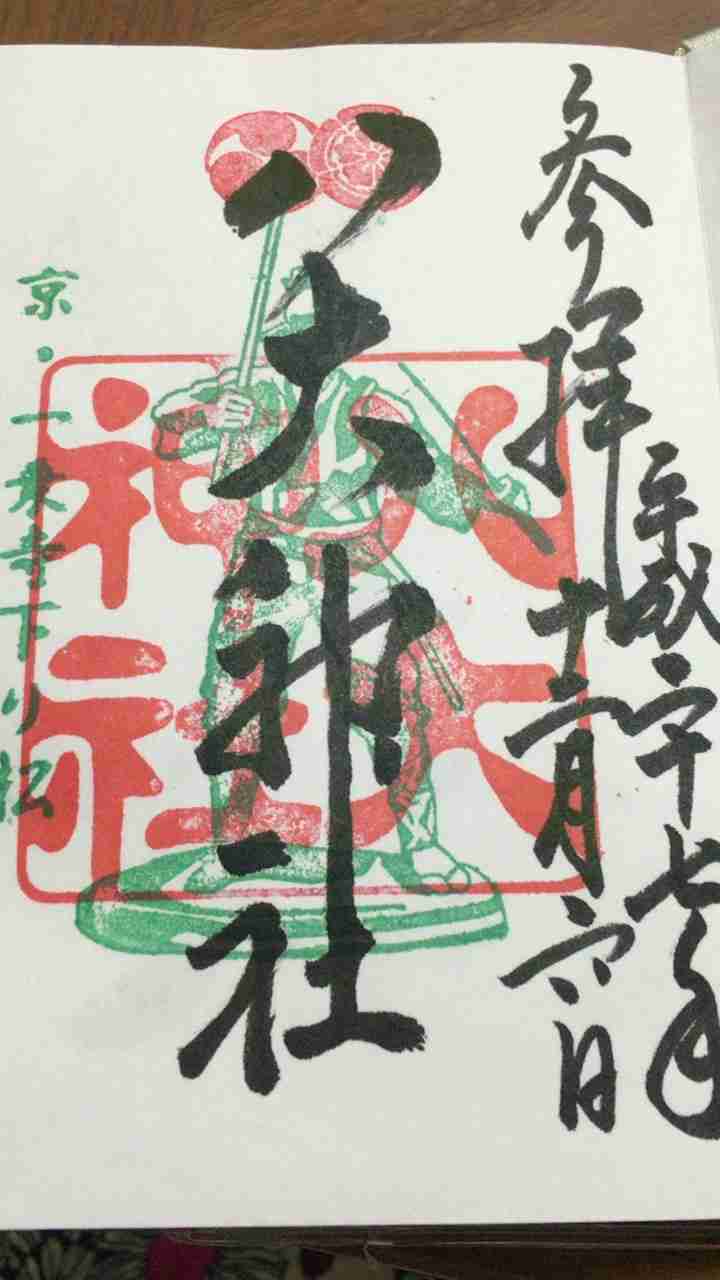 参拝
平成二十七年
十二月六日
八大神社
八大神社
京・一乗寺下り松